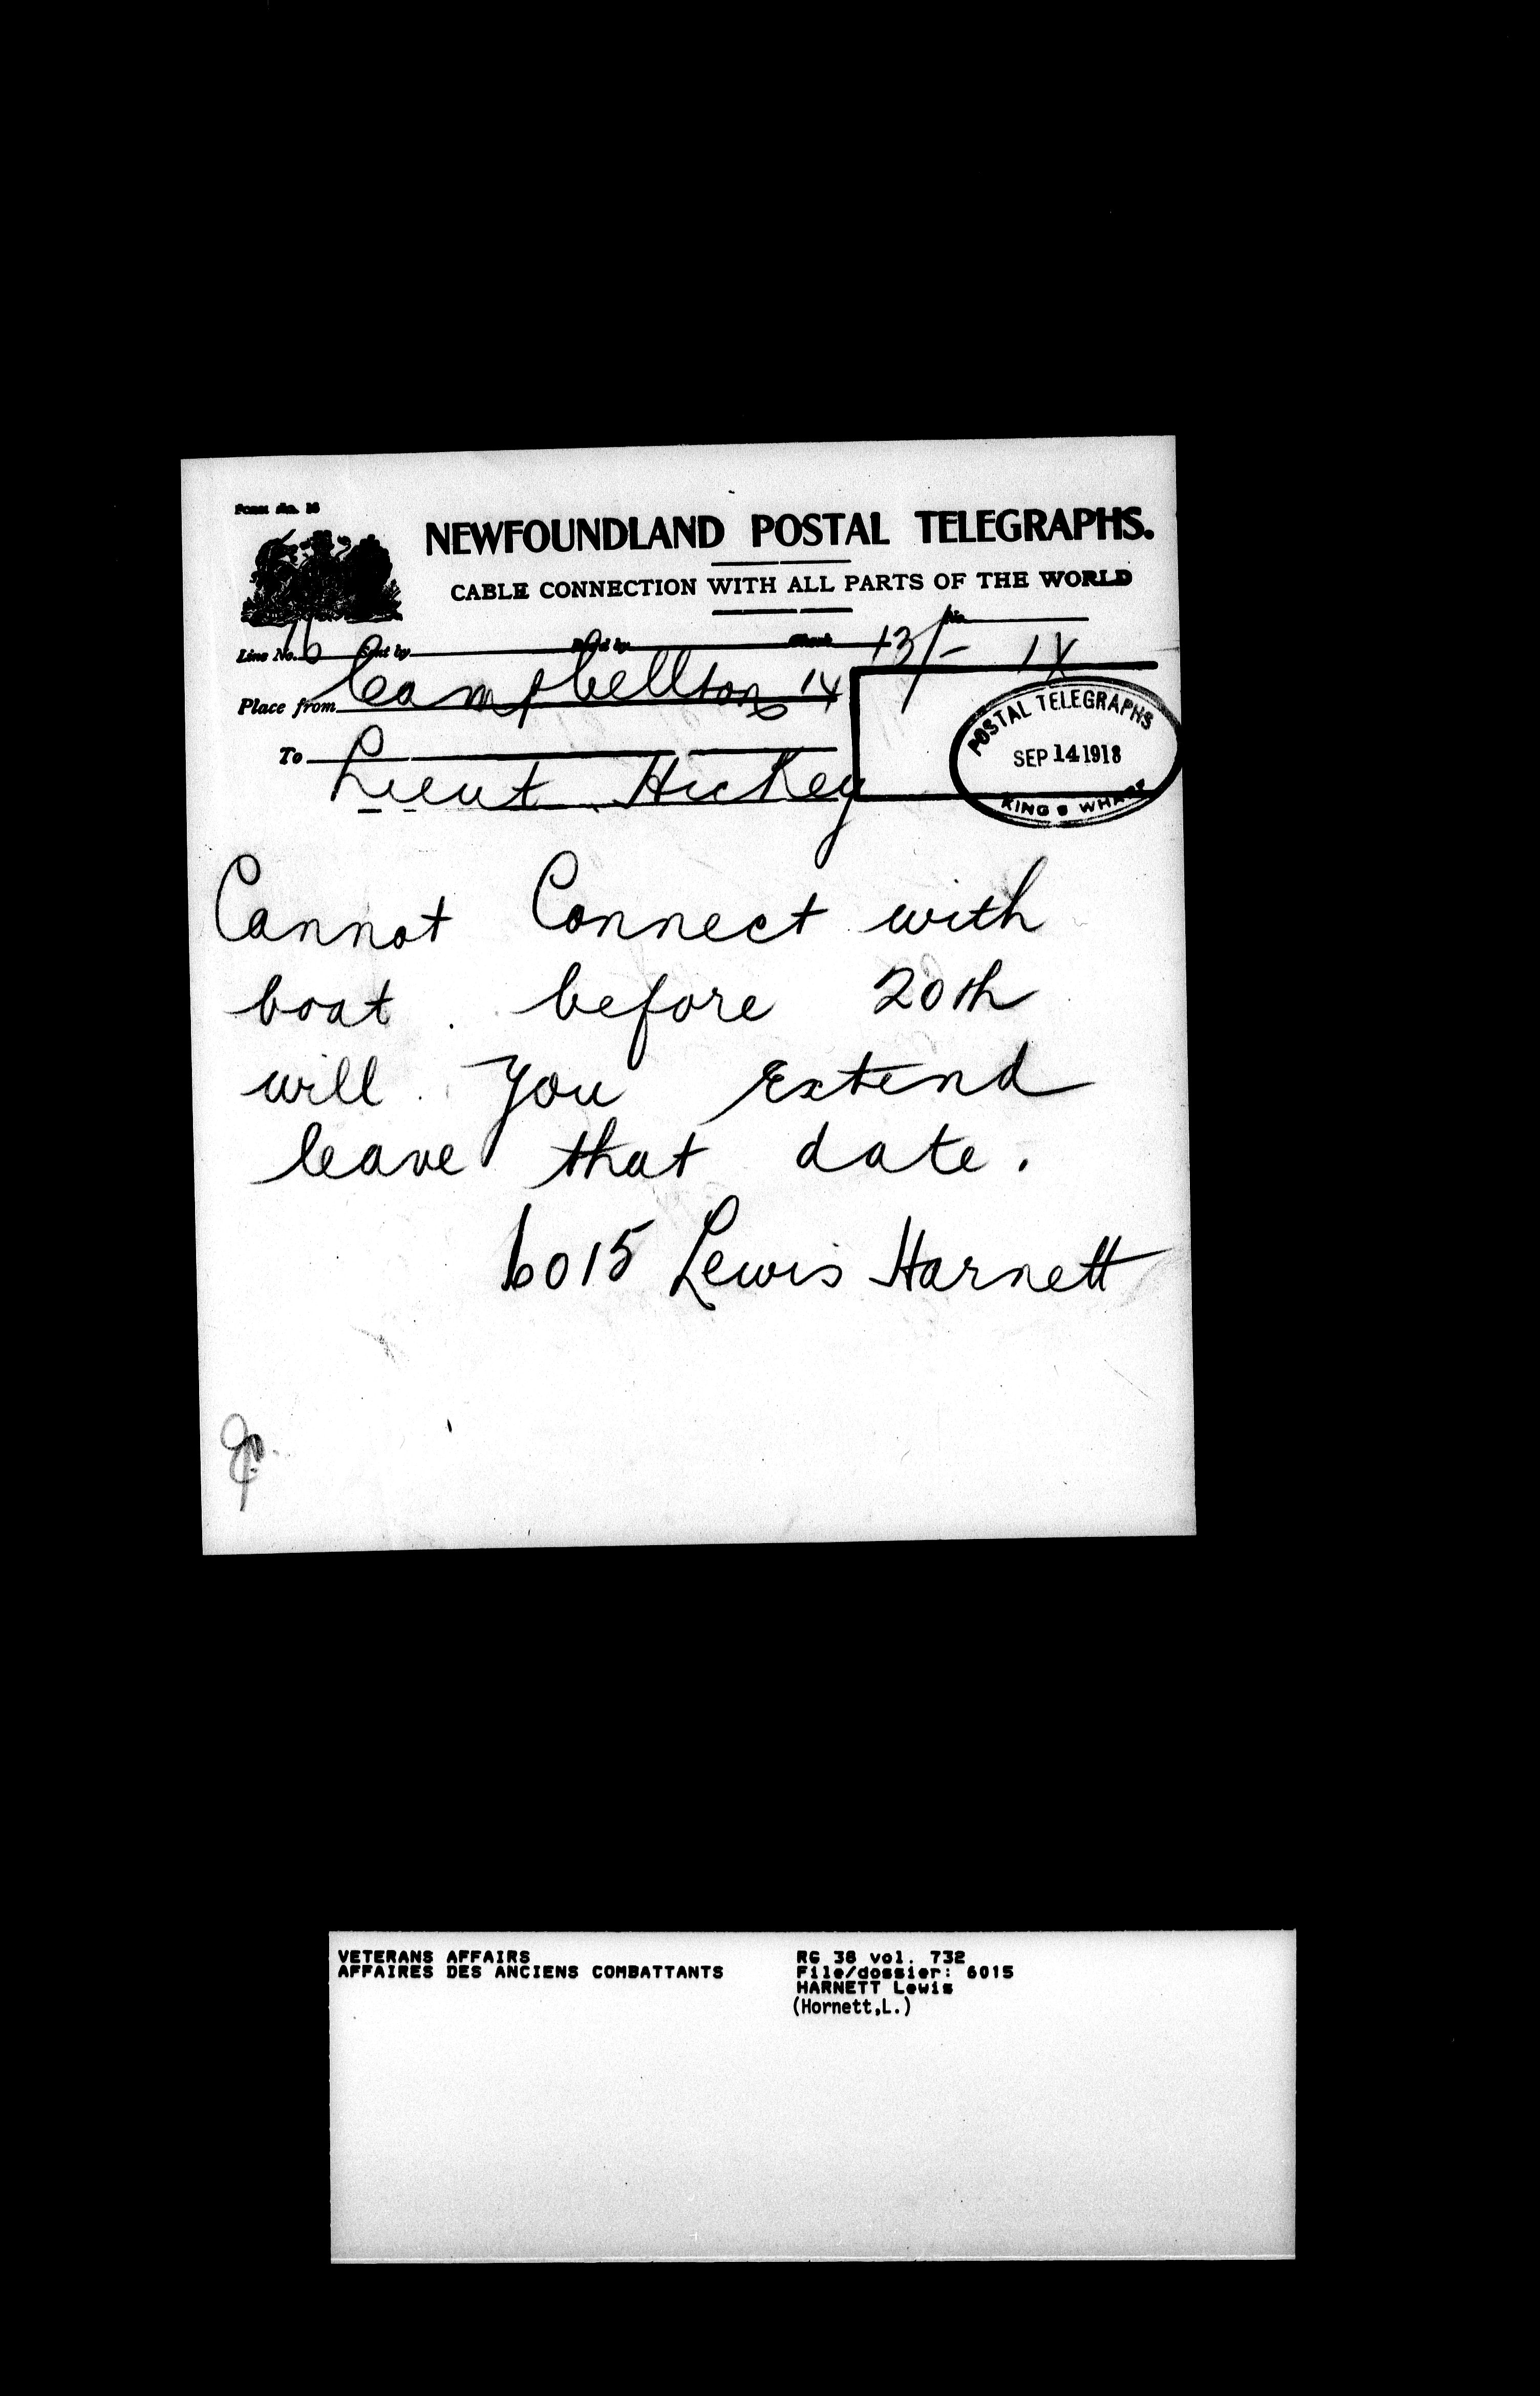 Form No. 16
NEWFOUNDLAND POSTAL TELEGRAPHS.
CABLE CONNECTION WITH ALL PARTS OF THE WORLD
No.
Line No. 76 Sent by Rec'd by Check 13/- 1X
Place from Campbellton 14
To Lieut Hickey
POSTAL TELEGRAPHS
SEP 14 1918
KINGS WHARF
Cannot Connect with
boat before 20th
will you Extend
leave that date.
6015 Lewis Harnett
VETERANS AFFAIRS
AFFAIRES DES ANCIENS COMBATTANTS
RG 38 vol. 732
File/dossier: 6015
HARNETT Lewis
(Hornett,L.)